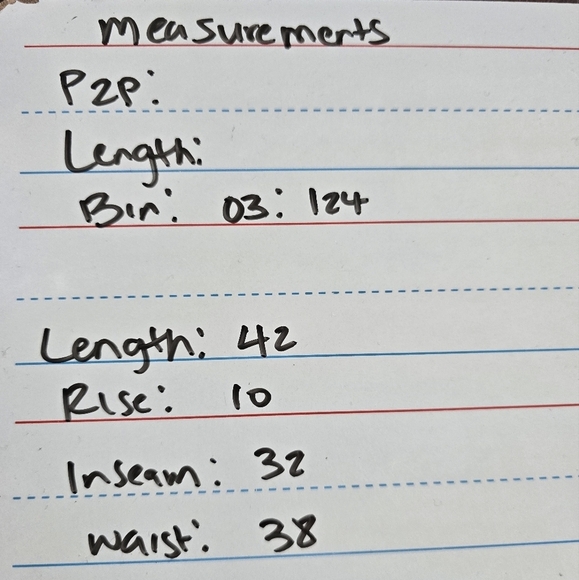 Measurements
P2P:
Length:
Bin: 03: 124
Length: 42
Rise: 10
Inseam: 32
Waist: 38